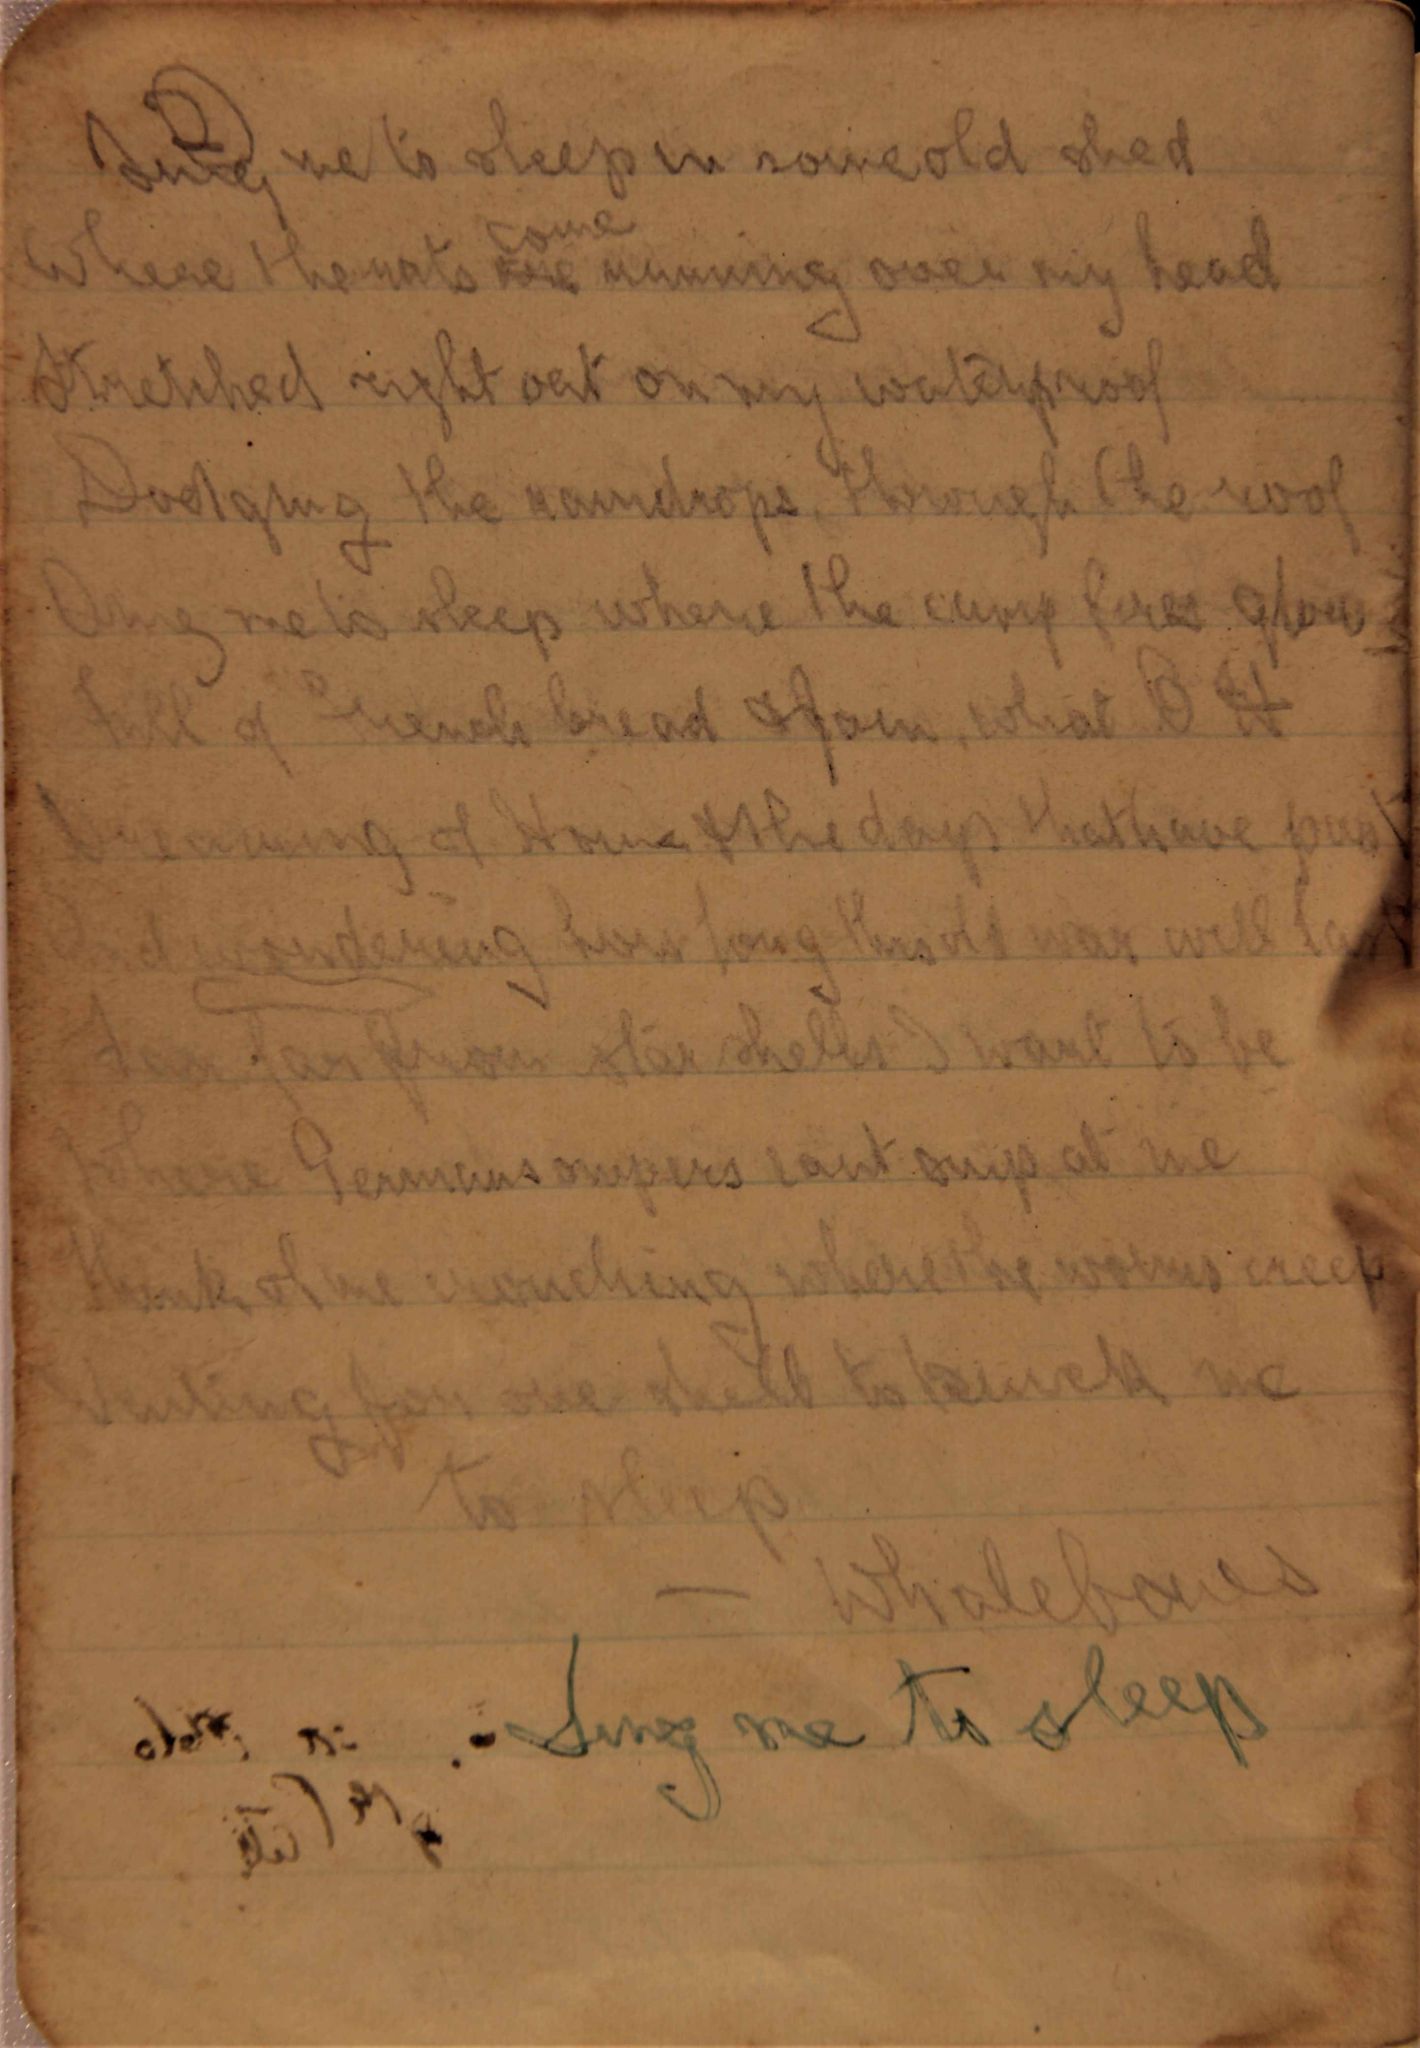 Sing me to sleep in some old shed
come
Where the rats are running over my head
Stretched right out on my waterproof
Dodging the raindrops, through the roof
Sing me to sleep where the camp fires glow
Full of French bread & jam, what O
Dreaming of Home & the days that have past
And wondering how long this old war will last
Far far from star shells I want to be
Where German snipers cant snip at me
Think of me crouching where the worms creep
Waiting for one shell to me
to sleep
— Whalebones
Sing me to sleep